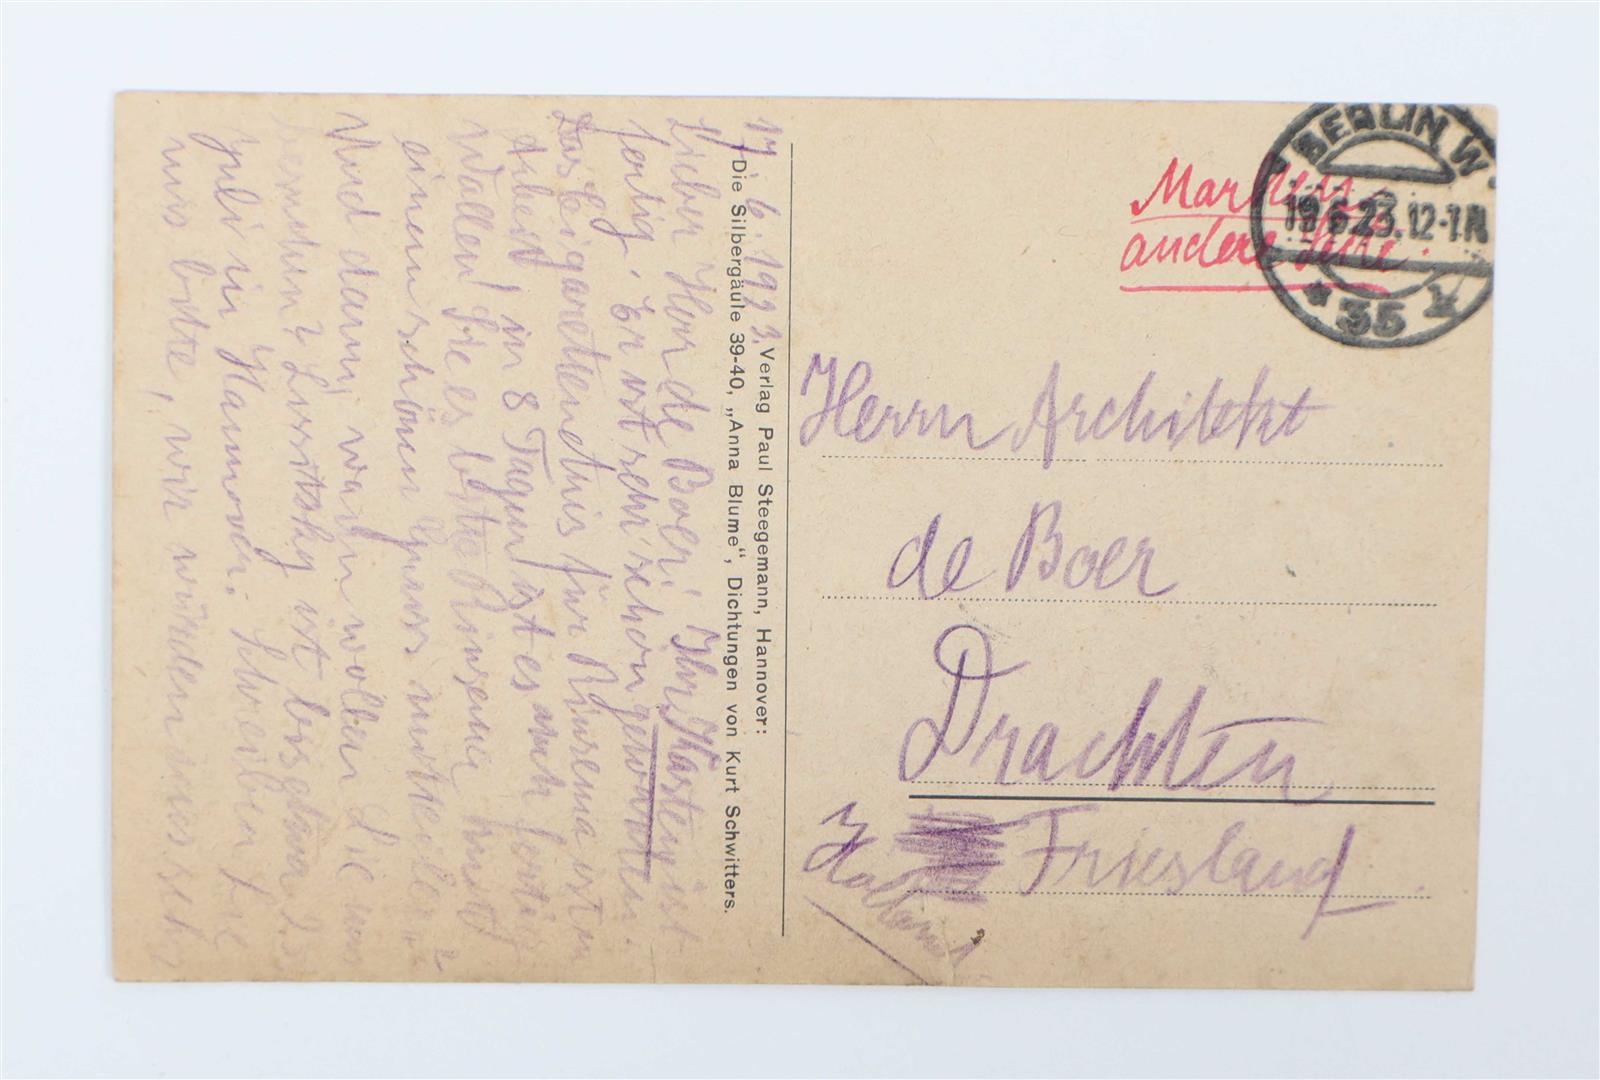 17.6.1923.
Lieber Herr de Boer! Ihr Kasten ist
fertig. Er ist sehr schön geworden.
Das Zigarettenetuis für Rinsema ist in
Arbeit, in 8 Tagen ist es auch fertig.
Wollen Sie es bitte Rinsema mit
einem schönen Gruss mitteilen?
Und dann, wann wollen Sie uns
besuchen? Lissitzky ist bis
Juli in Hannover. Schreiben Sie
uns bitte, wir würden uns sehr
Verlag Paul Steegemann, Hannover:
Die Silbergäule 39-40, „Anna Blume“, Dichtungen von Kurt Schwitters.
Marken
andere Seite.
BERLIN W.
19.6.23.12-1N
* 35
Herrn Architekt
de Boer
Drachten
Friesland
Holland